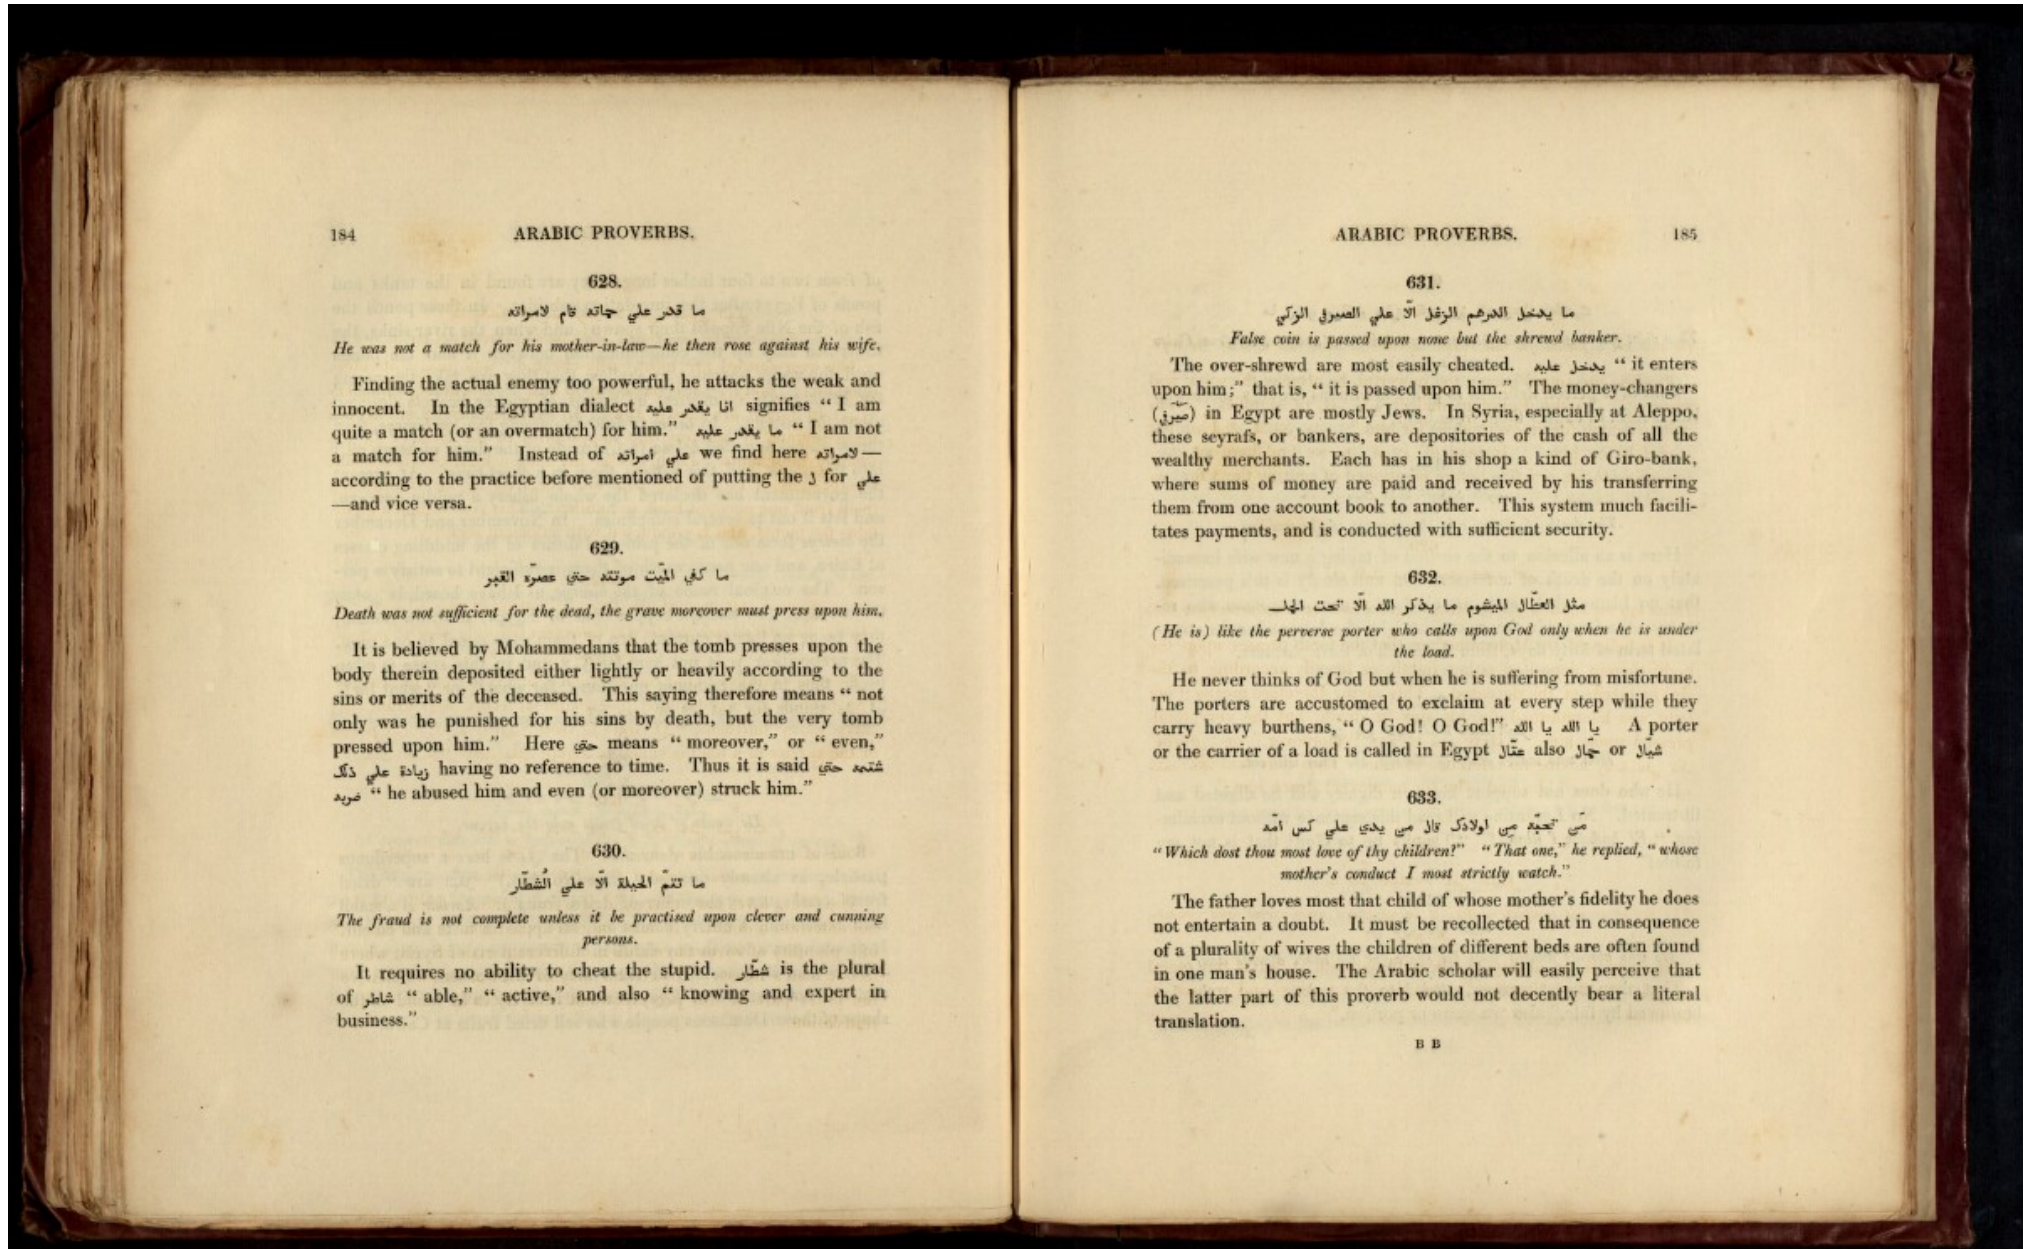 184 ARABIC PROVERBS.
628.
ما قدر علي حماته قام لامراته
He was not a match for his mother-in-law—he then rose against his wife.
Finding the actual enemy too powerful, he attacks the weak and
innocent. In the Egyptian dialect انا يقدر عليه signifies “ I am
quite a match (or an overmatch) for him.” ما يقدر عليه “ I am not
a match for him.” Instead of علي امراته we find here لامراته—
according to the practice before mentioned of putting the ل for علي
—and vice versa.
629.
ما كفي الميّت موتته حتي عصرّه القبر
Death was not sufficient for the dead, the grave moreover must press upon him.
It is believed by Mohammedans that the tomb presses upon the
body therein deposited either lightly or heavily according to the
sins or merits of the deceased. This saying therefore means “ not
only was he punished for his sins by death, but the very tomb
pressed upon him.” Here حتي means “ moreover,” or “ even,”
زيادة علي ذلك having no reference to time. Thus it is said شتمه حتي
ضربه “ he abused him and even (or moreover) struck him.”
630.
ما تتمّ الحيلة الّا علي الُشطّار
The fraud is not complete unless it be practised upon clever and cunning
persons.
It requires no ability to cheat the stupid. شطّار is the plural
of شاطر “ able,” “ active,” and also “ knowing and expert in
business.”
ARABIC PROVERBS. 185
631.
ما يدخل الدرهم الزغل الّا علي الصيرفي الزكي
False coin is passed upon none but the shrewd banker.
The over-shrewd are most easily cheated. يدخل عليه “ it enters
upon him ;” that is, “ it is passed upon him.” The money-changers
(صيّرفي) in Egypt are mostly Jews. In Syria, especially at Aleppo,
these seyrafs, or bankers, are depositories of the cash of all the
wealthy merchants. Each has in his shop a kind of Giro-bank,
where sums of money are paid and received by his transferring
them from one account book to another. This system much facili-
tates payments, and is conducted with sufficient security.
632.
مثل العتّال الميشوم ما يذكر الله الّا تحت الحمل
(He is) like the perverse porter who calls upon God only when he is under
the load.
He never thinks of God but when he is suffering from misfortune.
The porters are accustomed to exclaim at every step while they
carry heavy burthens, “ O God! O God!” يا الله يا الله A porter
or the carrier of a load is called in Egypt عتّال also حمّال or شيّال
633.
مَن تحبّه مِن اولادك قال من يدي علي كس امّه
“ Which dost thou most love of thy children?” “ That one,” he replied, “ whose
mother's conduct I most strictly watch.”
The father loves most that child of whose mother's fidelity he does
not entertain a doubt. It must be recollected that in consequence
of a plurality of wives the children of different beds are often found
in one man's house. The Arabic scholar will easily perceive that
the latter part of this proverb would not decently bear a literal
translation.
B B